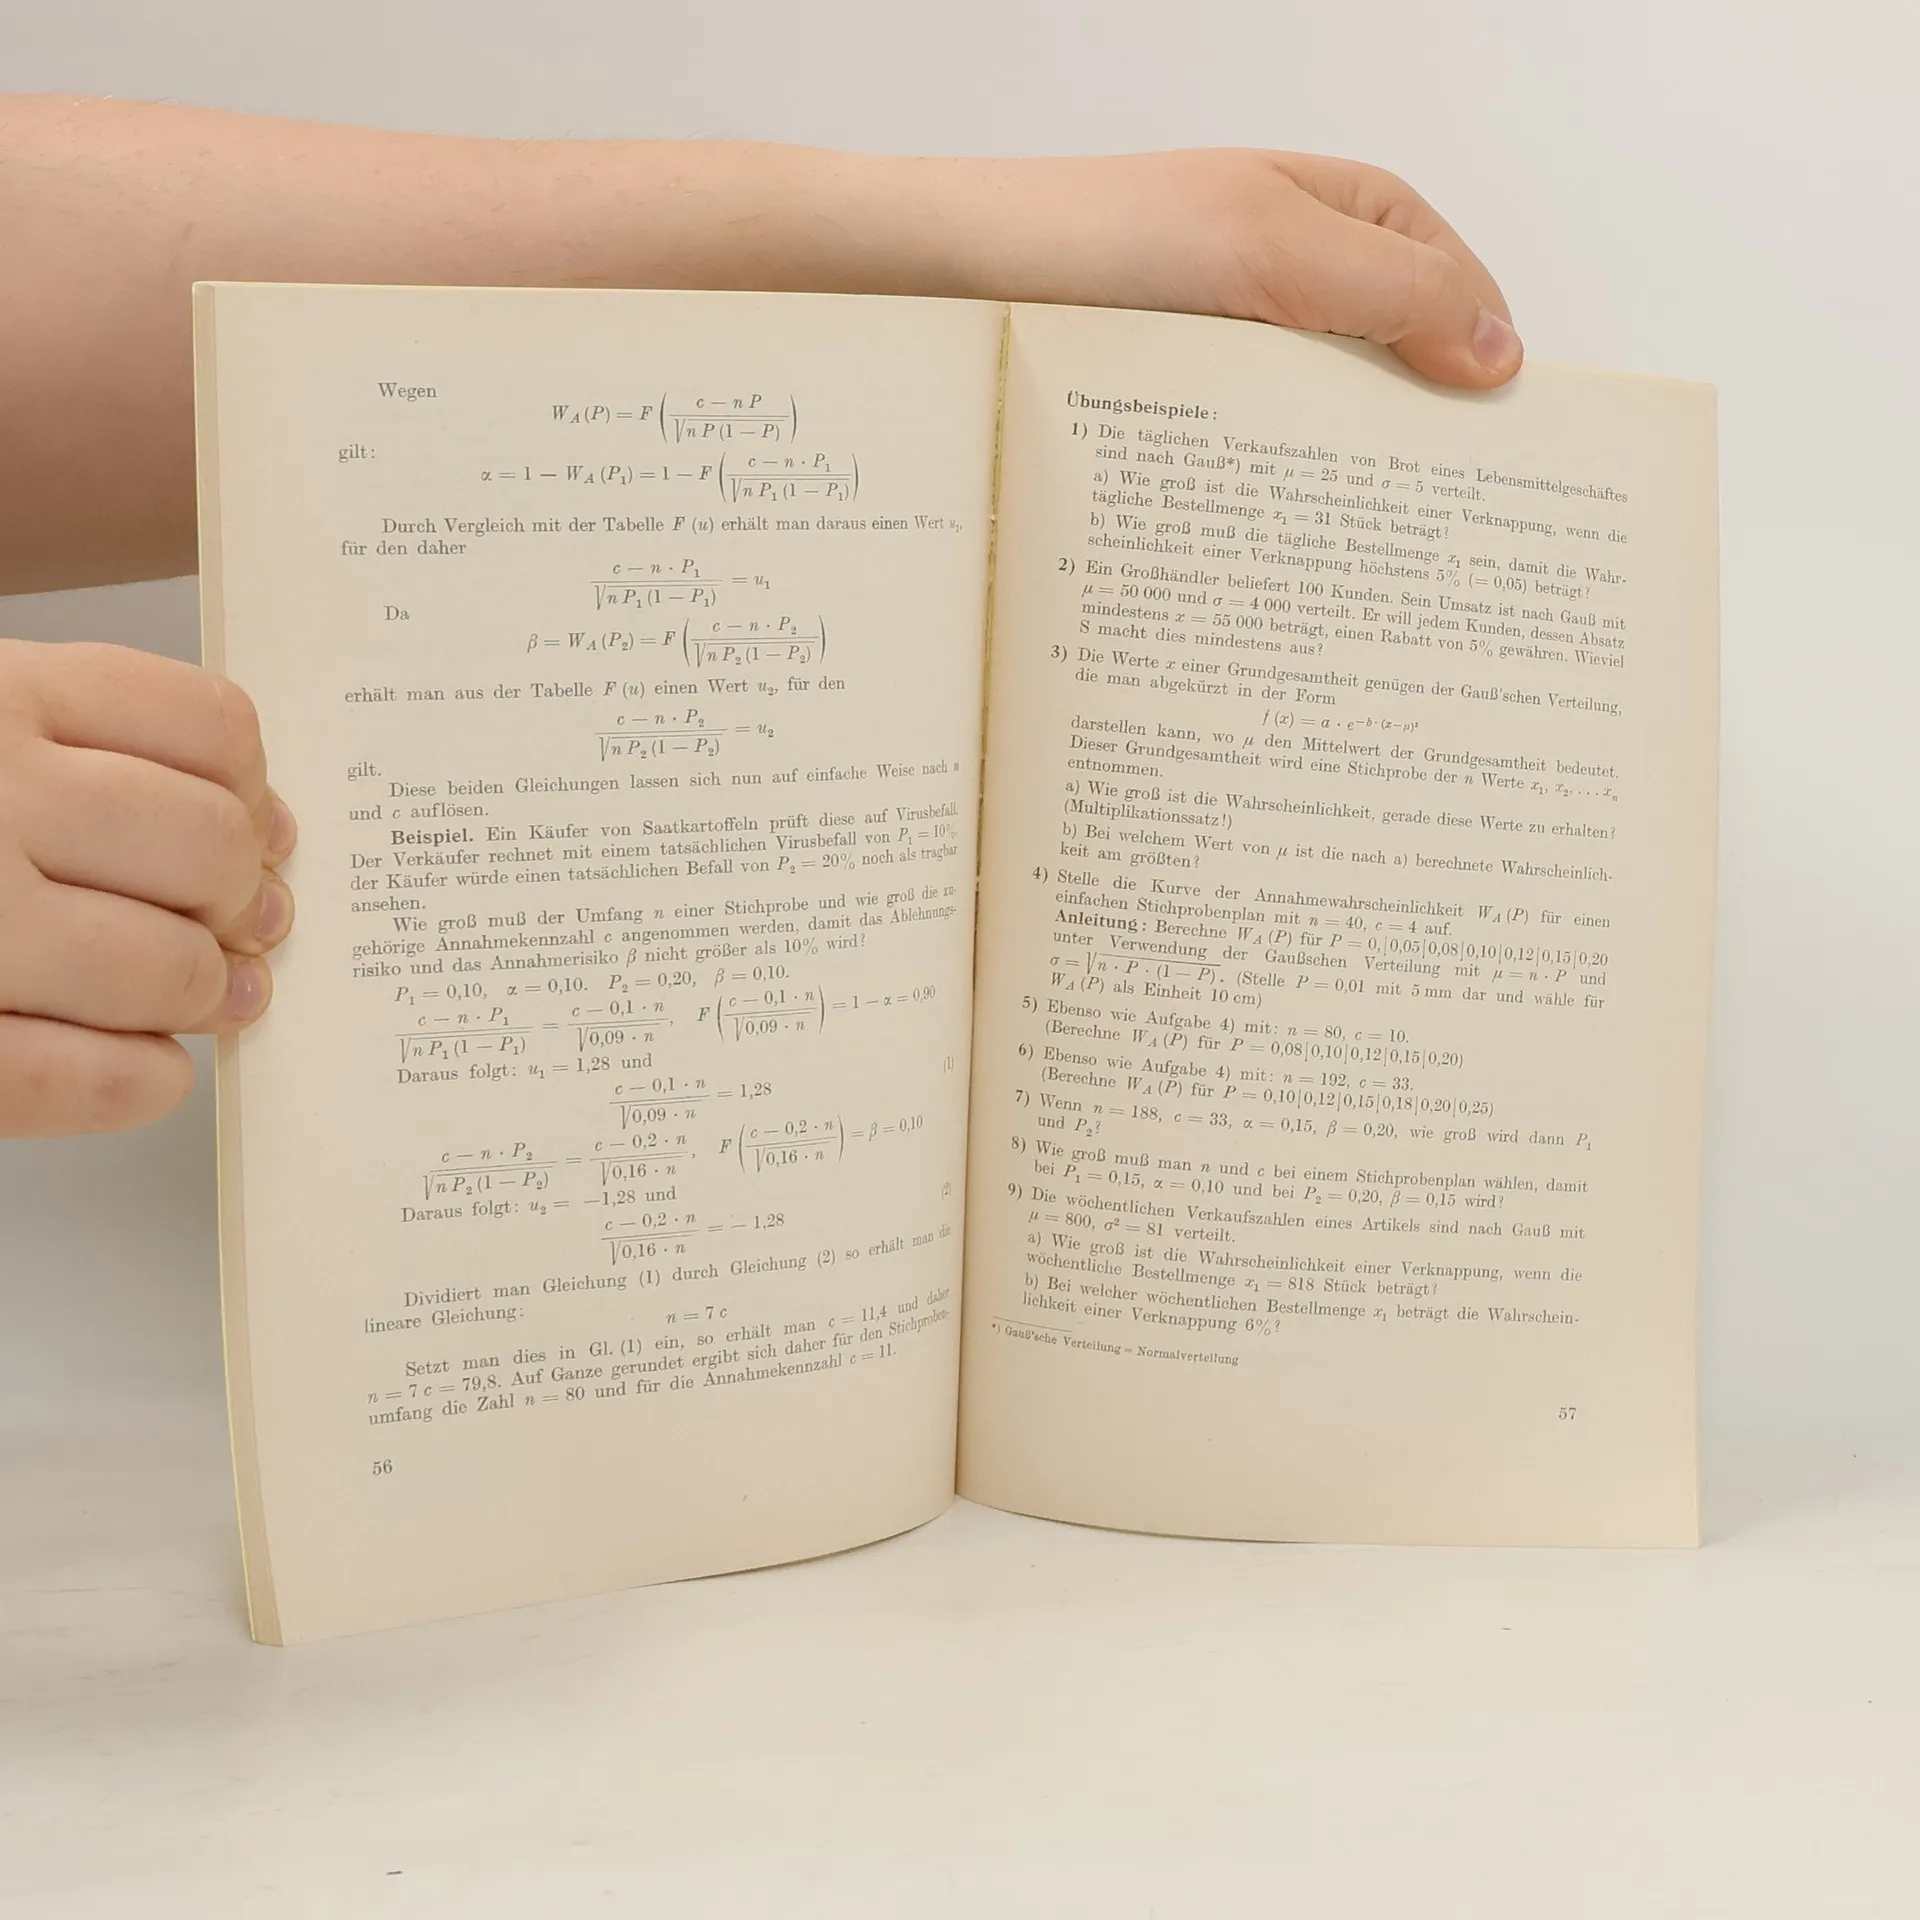 Wegen
W_A (P) = F ( (c − n P) / √(n P (1 − P)) )
gilt:
α = 1 − W_A (P₁) = 1 − F ( (c − n · P₁) / √(n P₁ (1 − P₁)) )
Durch Vergleich mit der Tabelle F (u) erhält man daraus einen Wert u₁,
für den daher
(c − n · P₁) / √(n P₁ (1 − P₁)) = u₁
Da
β = W_A (P₂) = F ( (c − n · P₂) / √(n P₂ (1 − P₂)) )
erhält man aus der Tabelle F (u) einen Wert u₂, für den
(c − n · P₂) / √(n P₂ (1 − P₂)) = u₂
gilt.
Diese beiden Gleichungen lassen sich nun auf einfache Weise nach n
und c auflösen.
Beispiel. Ein Käufer von Saatkartoffeln prüft diese auf Virusbefall.
Der Verkäufer rechnet mit einem tatsächlichen Virusbefall von P₁ = 10%,
der Käufer würde einen tatsächlichen Befall von P₂ = 20% noch als tragbar
ansehen.
Wie groß muß der Umfang n einer Stichprobe und wie groß die zu-
gehörige Annahmekennzahl c angenommen werden, damit das Ablehnungs-
risiko und das Annahmerisiko β nicht größer als 10% wird?
P₁ = 0,10, α = 0,10. P₂ = 0,20, β = 0,10.
(c − n · P₁) / √(n P₁ (1 − P₁)) = (c − 0,1 · n) / √(0,09 · n), F ( (c − 0,1 · n) / √(0,09 · n) ) = 1 − α = 0,90
Daraus folgt: u₁ = 1,28 und
(c − 0,1 · n) / √(0,09 · n) = 1,28 (1)
(c − n · P₂) / √(n P₂ (1 − P₂)) = (c − 0,2 · n) / √(0,16 · n), F ( (c − 0,2 · n) / √(0,16 · n) ) = β = 0,10
Daraus folgt: u₂ = −1,28 und
(c − 0,2 · n) / √(0,16 · n) = − 1,28 (2)
Dividiert man Gleichung (1) durch Gleichung (2) so erhält man die
lineare Gleichung:
n = 7 c
Setzt man dies in Gl. (1) ein, so erhält man c = 11,4 und daher
n = 7 c = 79,8. Auf Ganze gerundet ergibt sich daher für den Stichproben-
umfang die Zahl n = 80 und für die Annahmekennzahl c = 11.
56
Übungsbeispiele:
1) Die täglichen Verkaufszahlen von Brot eines Lebensmittelgeschäftes
sind nach Gauß*) mit μ = 25 und σ = 5 verteilt.
a) Wie groß ist die Wahrscheinlichkeit einer Verknappung, wenn die
tägliche Bestellmenge x₁ = 31 Stück beträgt?
b) Wie groß muß die tägliche Bestellmenge x₁ sein, damit die Wahr-
scheinlichkeit einer Verknappung höchstens 5% (= 0,05) beträgt?
2) Ein Großhändler beliefert 100 Kunden. Sein Umsatz ist nach Gauß mit
μ = 50 000 und σ = 4 000 verteilt. Er will jedem Kunden, dessen Absatz
mindestens x = 55 000 beträgt, einen Rabatt von 5% gewähren. Wieviel
S macht dies mindestens aus?
3) Die Werte x einer Grundgesamtheit genügen der Gauß'schen Verteilung,
die man abgekürzt in der Form
f (x) = a · e^(−b·(x−μ)²)
darstellen kann, wo μ den Mittelwert der Grundgesamtheit bedeutet.
Dieser Grundgesamtheit wird eine Stichprobe der n Werte x₁, x₂, . . . xₙ
entnommen.
a) Wie groß ist die Wahrscheinlichkeit, gerade diese Werte zu erhalten?
(Multiplikationssatz!)
b) Bei welchem Wert von μ ist die nach a) berechnete Wahrscheinlich-
keit am größten?
4) Stelle die Kurve der Annahmewahrscheinlichkeit W_A (P) für einen
einfachen Stichprobenplan mit n = 40, c = 4 auf.
Anleitung: Berechne W_A (P) für P = 0,|0,05|0,08|0,10|0,12|0,15|0,20
unter Verwendung der Gaußschen Verteilung mit μ = n · P und
σ = √(n · P · (1 − P)). (Stelle P = 0,01 mit 5 mm dar und wähle für
W_A (P) als Einheit 10 cm)
5) Ebenso wie Aufgabe 4) mit: n = 80, c = 10.
(Berechne W_A (P) für P = 0,08|0,10|0,12|0,15|0,20)
6) Ebenso wie Aufgabe 4) mit: n = 192, c = 33.
(Berechne W_A (P) für P = 0,10|0,12|0,15|0,18|0,20|0,25)
7) Wenn n = 188, c = 33, α = 0,15, β = 0,20, wie groß wird dann P₁
und P₂?
8) Wie groß muß man n und c bei einem Stichprobenplan wählen, damit
bei P₁ = 0,15, α = 0,10 und bei P₂ = 0,20, β = 0,15 wird?
9) Die wöchentlichen Verkaufszahlen eines Artikels sind nach Gauß mit
μ = 800, σ² = 81 verteilt.
a) Wie groß ist die Wahrscheinlichkeit einer Verknappung, wenn die
wöchentliche Bestellmenge x₁ = 818 Stück beträgt?
b) Bei welcher wöchentlichen Bestellmenge x₁ beträgt die Wahrschein-
lichkeit einer Verknappung 6%?
*) Gauß'sche Verteilung = Normalverteilung
57